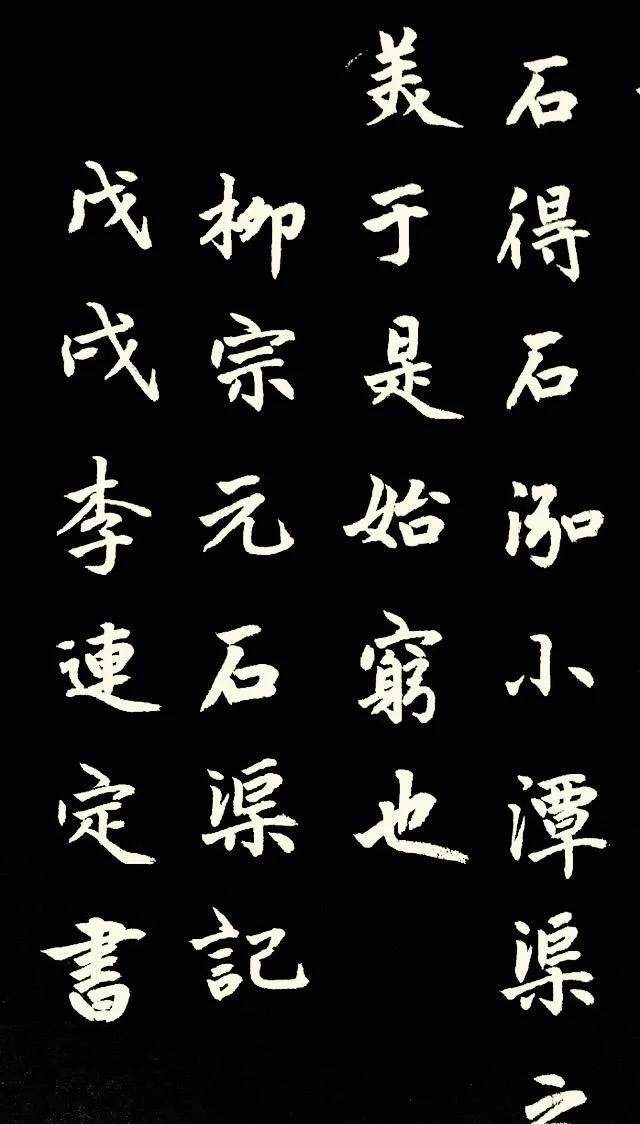 石得石泓小潭渠之
美于是始窮也
柳宗元石渠記
戊戌李連定書